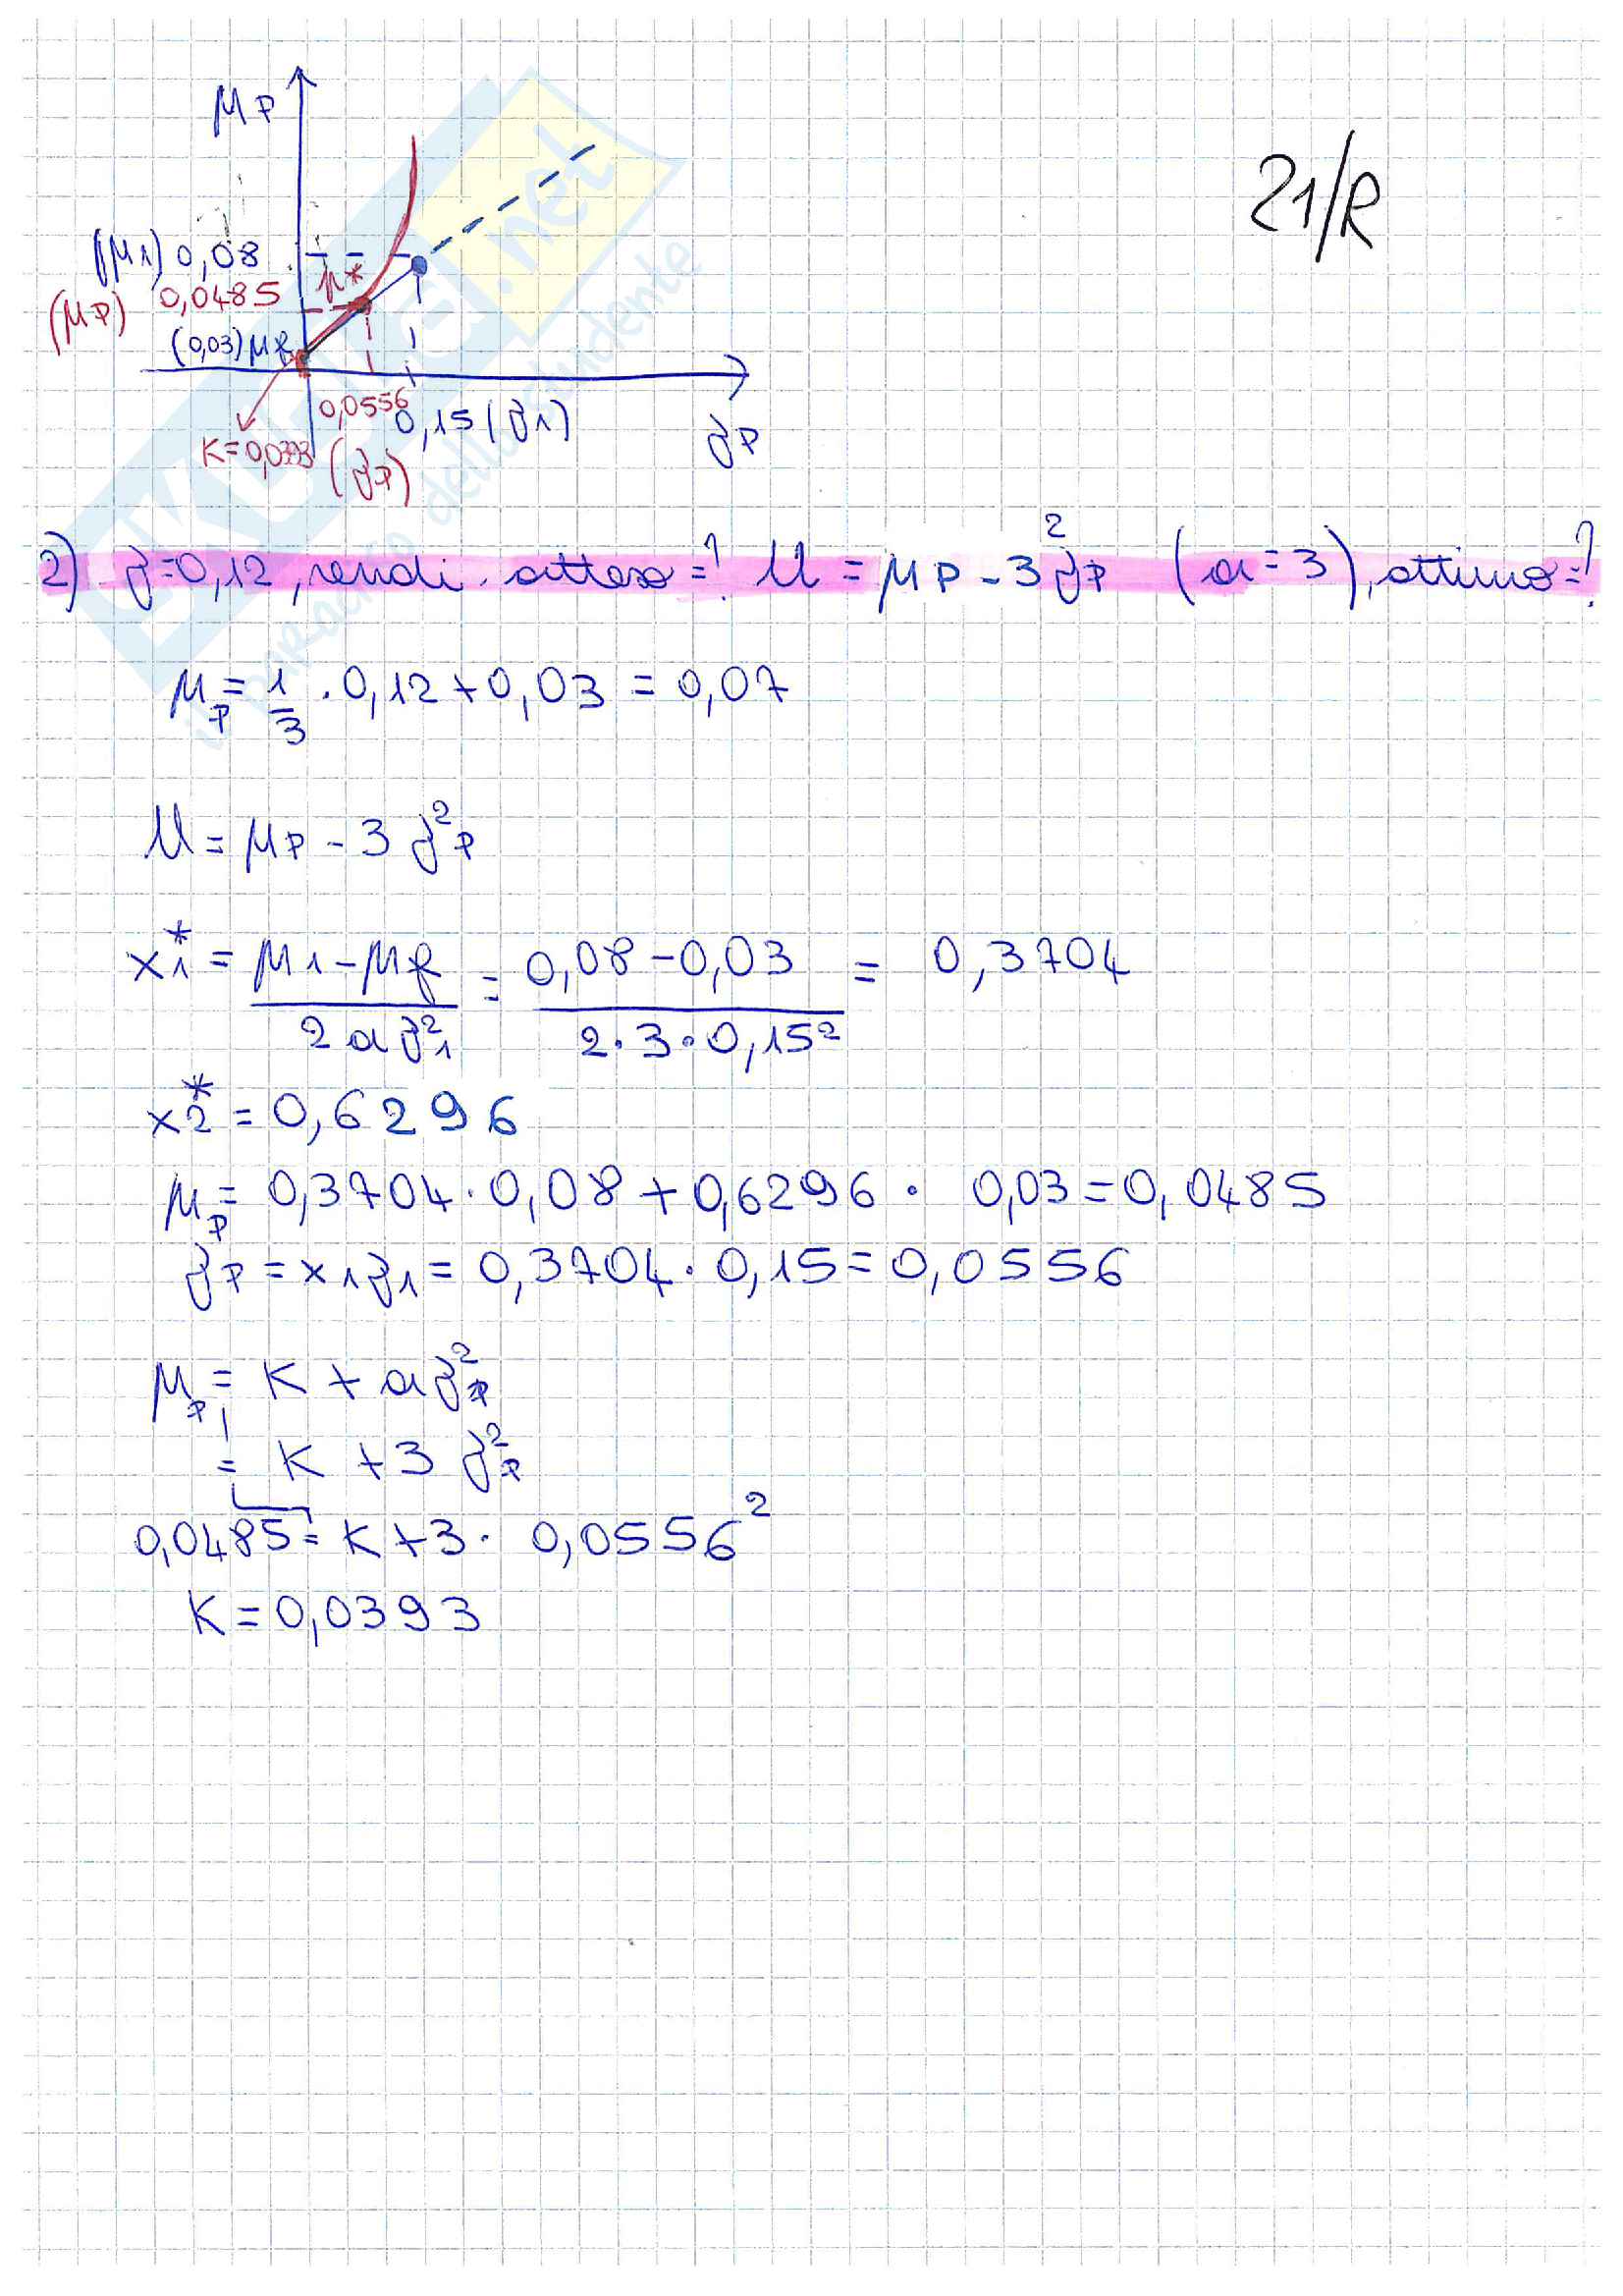 μp
21/R
(μ1) 0,08
μ*
(μp) 0,0485
(0,03) μf
0,0556
0,15 (σ1)
σp
K=0,0393
(σp)
2) σ=0,12, rendi. atteso=? U = μp - 3σp² (a=3), ottimo=?
μp = 1/3 · 0,12 + 0,03 = 0,07
U = μp - 3 σ²p
x1* = (μ1 - μf)/(2 a σ1²) = (0,08 - 0,03)/(2·3·0,15²) = 0,3704
x2* = 0,6296
μp = 0,3704 · 0,08 + 0,6296 · 0,03 = 0,0485
σp = x1σ1 = 0,3704 · 0,15 = 0,0556
μp = K + aσ²p
= K + 3 σ²p
0,0485 = K + 3 · 0,0556²
K = 0,0393
SKUOLA.net
il paradiso dello studente